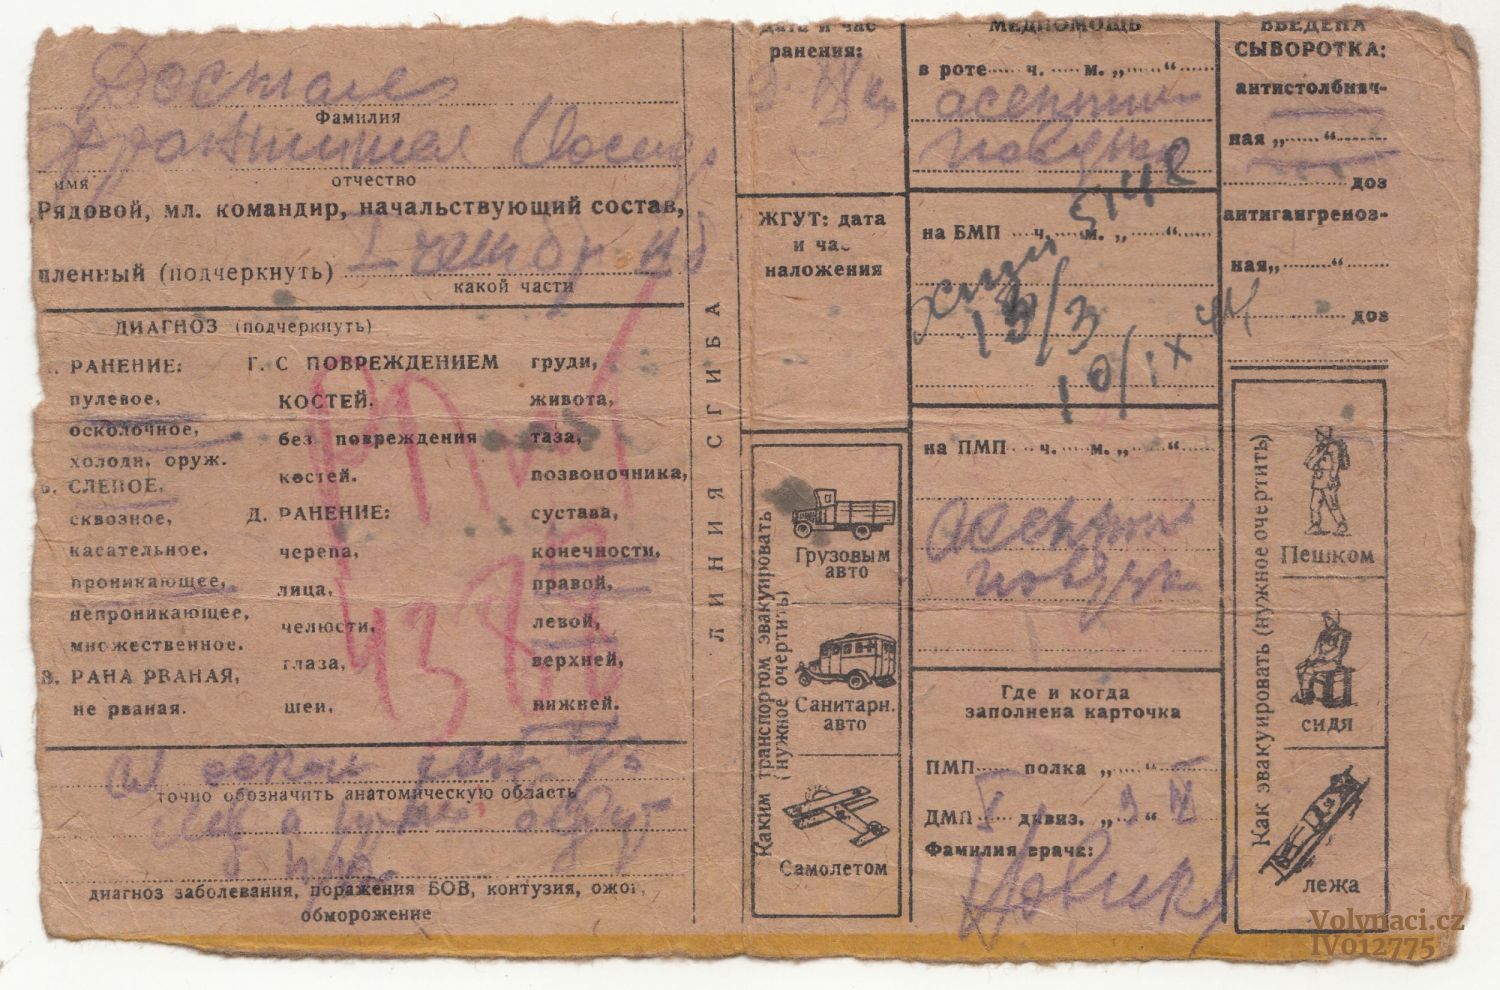 Досталь
Фамилия
Франтишек Иосиф.
имя отчество
Рядовой, мл. командир, начальствующий состав,
пленный (подчеркнуть) I
какой части
ДИАГНОЗ (подчеркнуть)
РАНЕНИЕ:
пулевое,
осколочное,
холодн. оруж.
Б. СЛЕПОЕ,
сквозное,
касательное,
проникающее,
непроникающее,
множественное.
В. РАНА РВАНАЯ,
не рваная.
Г. С ПОВРЕЖДЕНИЕМ
КОСТЕЙ.
без повреждения
костей.
Д. РАНЕНИЕ:
черепа,
лица,
челюсти,
глаза,
шеи,
груди,
живота,
таза,
позвоночника,
сустава,
конечности,
правой,
левой,
верхней,
нижней.
43
точно обозначить анатомическую область
диагноз заболевания, поражения БОВ, контузия, ожог,
обморожение
ЛИНИЯ СГИБА
Дата и час
ранения:
ЖГУТ: дата
и час
наложения
Каким транспортом эвакуировать
(нужное очертить)
Грузовым
авто
Санитарн.
авто
Самолетом
МЕДПОМОЩЬ
в роте ч. м. „ “
асептич
повязка
на БМП ч. м. „ “
5148
13/3
10/IX 44
на ПМП ч. м. „ “
асептич
повязка
Где и когда
заполнена карточка
ПМП полка „ “
ДМП I дивиз. „9 “ IX
Фамилия врача:
ВВЕДЕНА
СЫВОРОТКА:
антистолбняч-
ная „ “
доз
антигангреноз-
ная „ “
доз
Как эвакуировать (нужное очертить)
Пешком
сидя
лежа
Volynaci.cz
IV012775